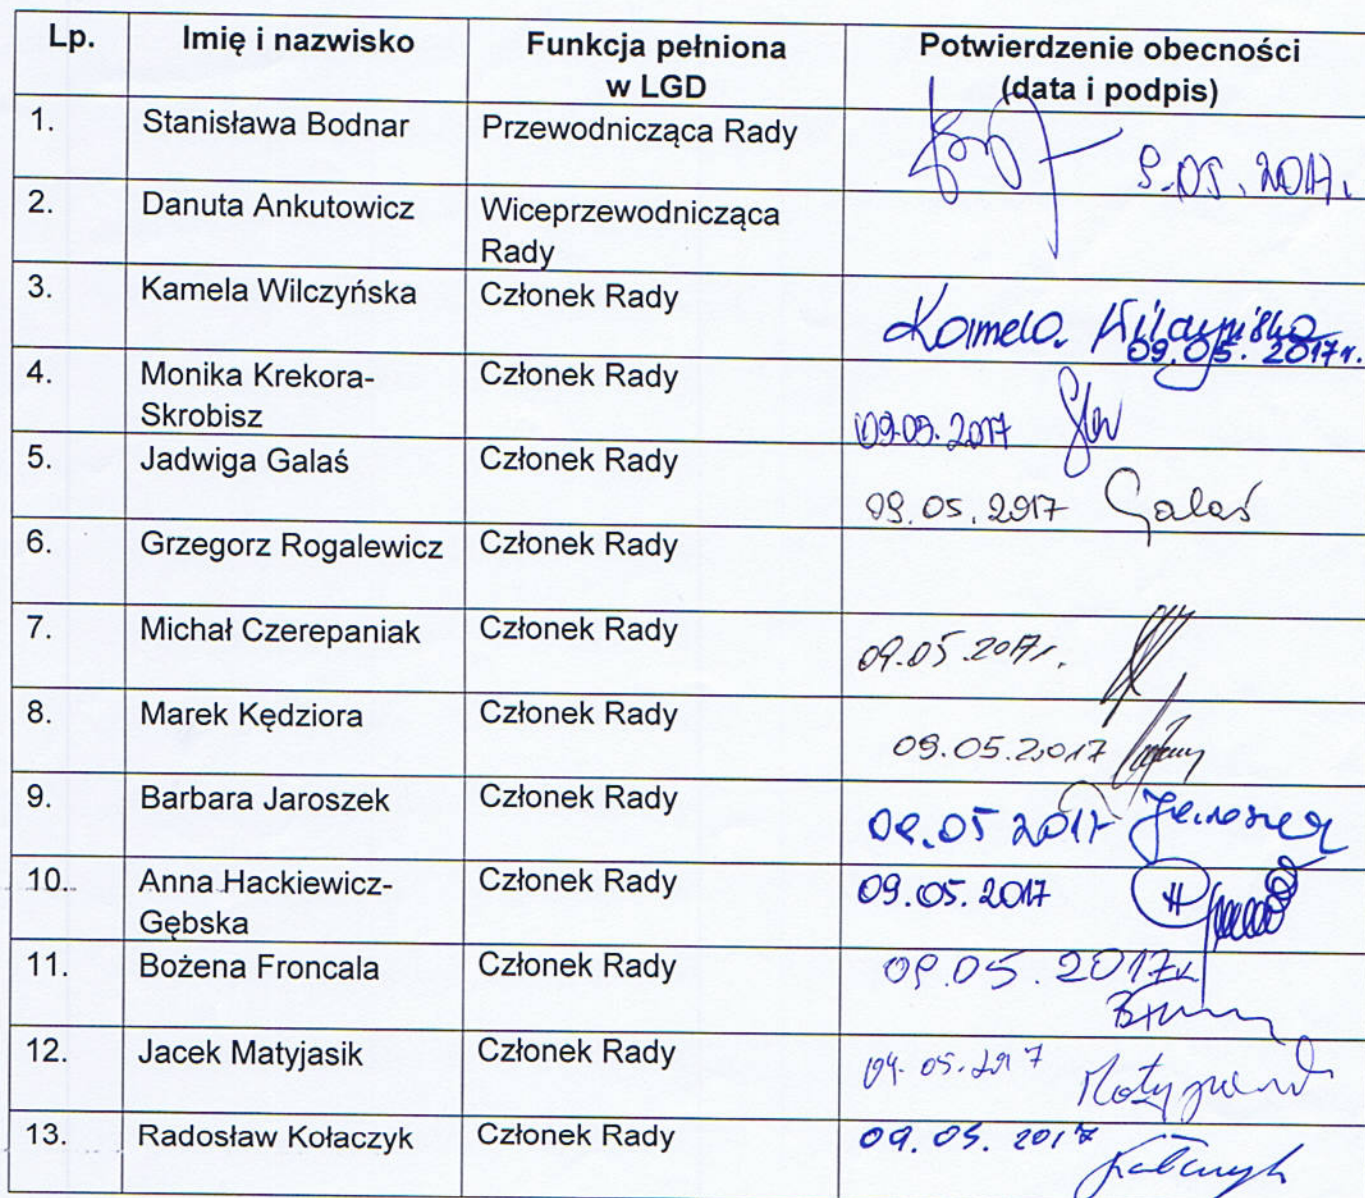 Lp. Imię i nazwisko Funkcja pełniona w LGD Potwierdzenie obecności (data i podpis)
1. Stanisława Bodnar Przewodnicząca Rady 9.05.2017r.
2. Danuta Ankutowicz Wiceprzewodnicząca Rady
3. Kamela Wilczyńska Członek Rady Kamela Wilczyńska 09.05.2017r.
4. Monika Krekora-Skrobisz Członek Rady 09.05.2017
5. Jadwiga Galaś Członek Rady 09.05.2017 Galaś
6. Grzegorz Rogalewicz Członek Rady
7. Michał Czerepaniak Członek Rady 09.05.2017r.
8. Marek Kędziora Członek Rady 09.05.2017
9. Barbara Jaroszek Członek Rady 09.05 2017 Jaroszek
10. Anna Hackiewicz-Gębska Członek Rady 09.05.2017
11. Bożena Froncala Członek Rady 09.05.2017r
12. Jacek Matyjasik Członek Rady 09.05.2017 Matyjasik
13. Radosław Kołaczyk Członek Rady 09.05.2017 Kołaczyk